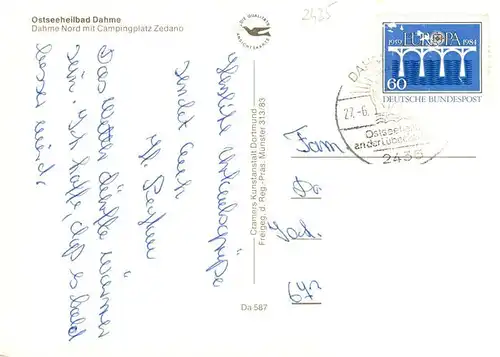 Ostseeheilbad Dahme
Dahme Nord mit Campingplatz Zedano
2435
Herzliche Urlaubsgrüße
sendet Euch
Das Wetter dürfte wärmer
sein. Ich hoffe, daß es bald
besser wird.
Cramers Kunstanstalt Dortmund
Freigeg. d. Reg.-Präs. Münster 313/83
Da 587
EUROPA
1959 1984
60
DEUTSCHE BUNDESPOST
27.-6.
Ostsee
an der Lübe
2435
Fam.